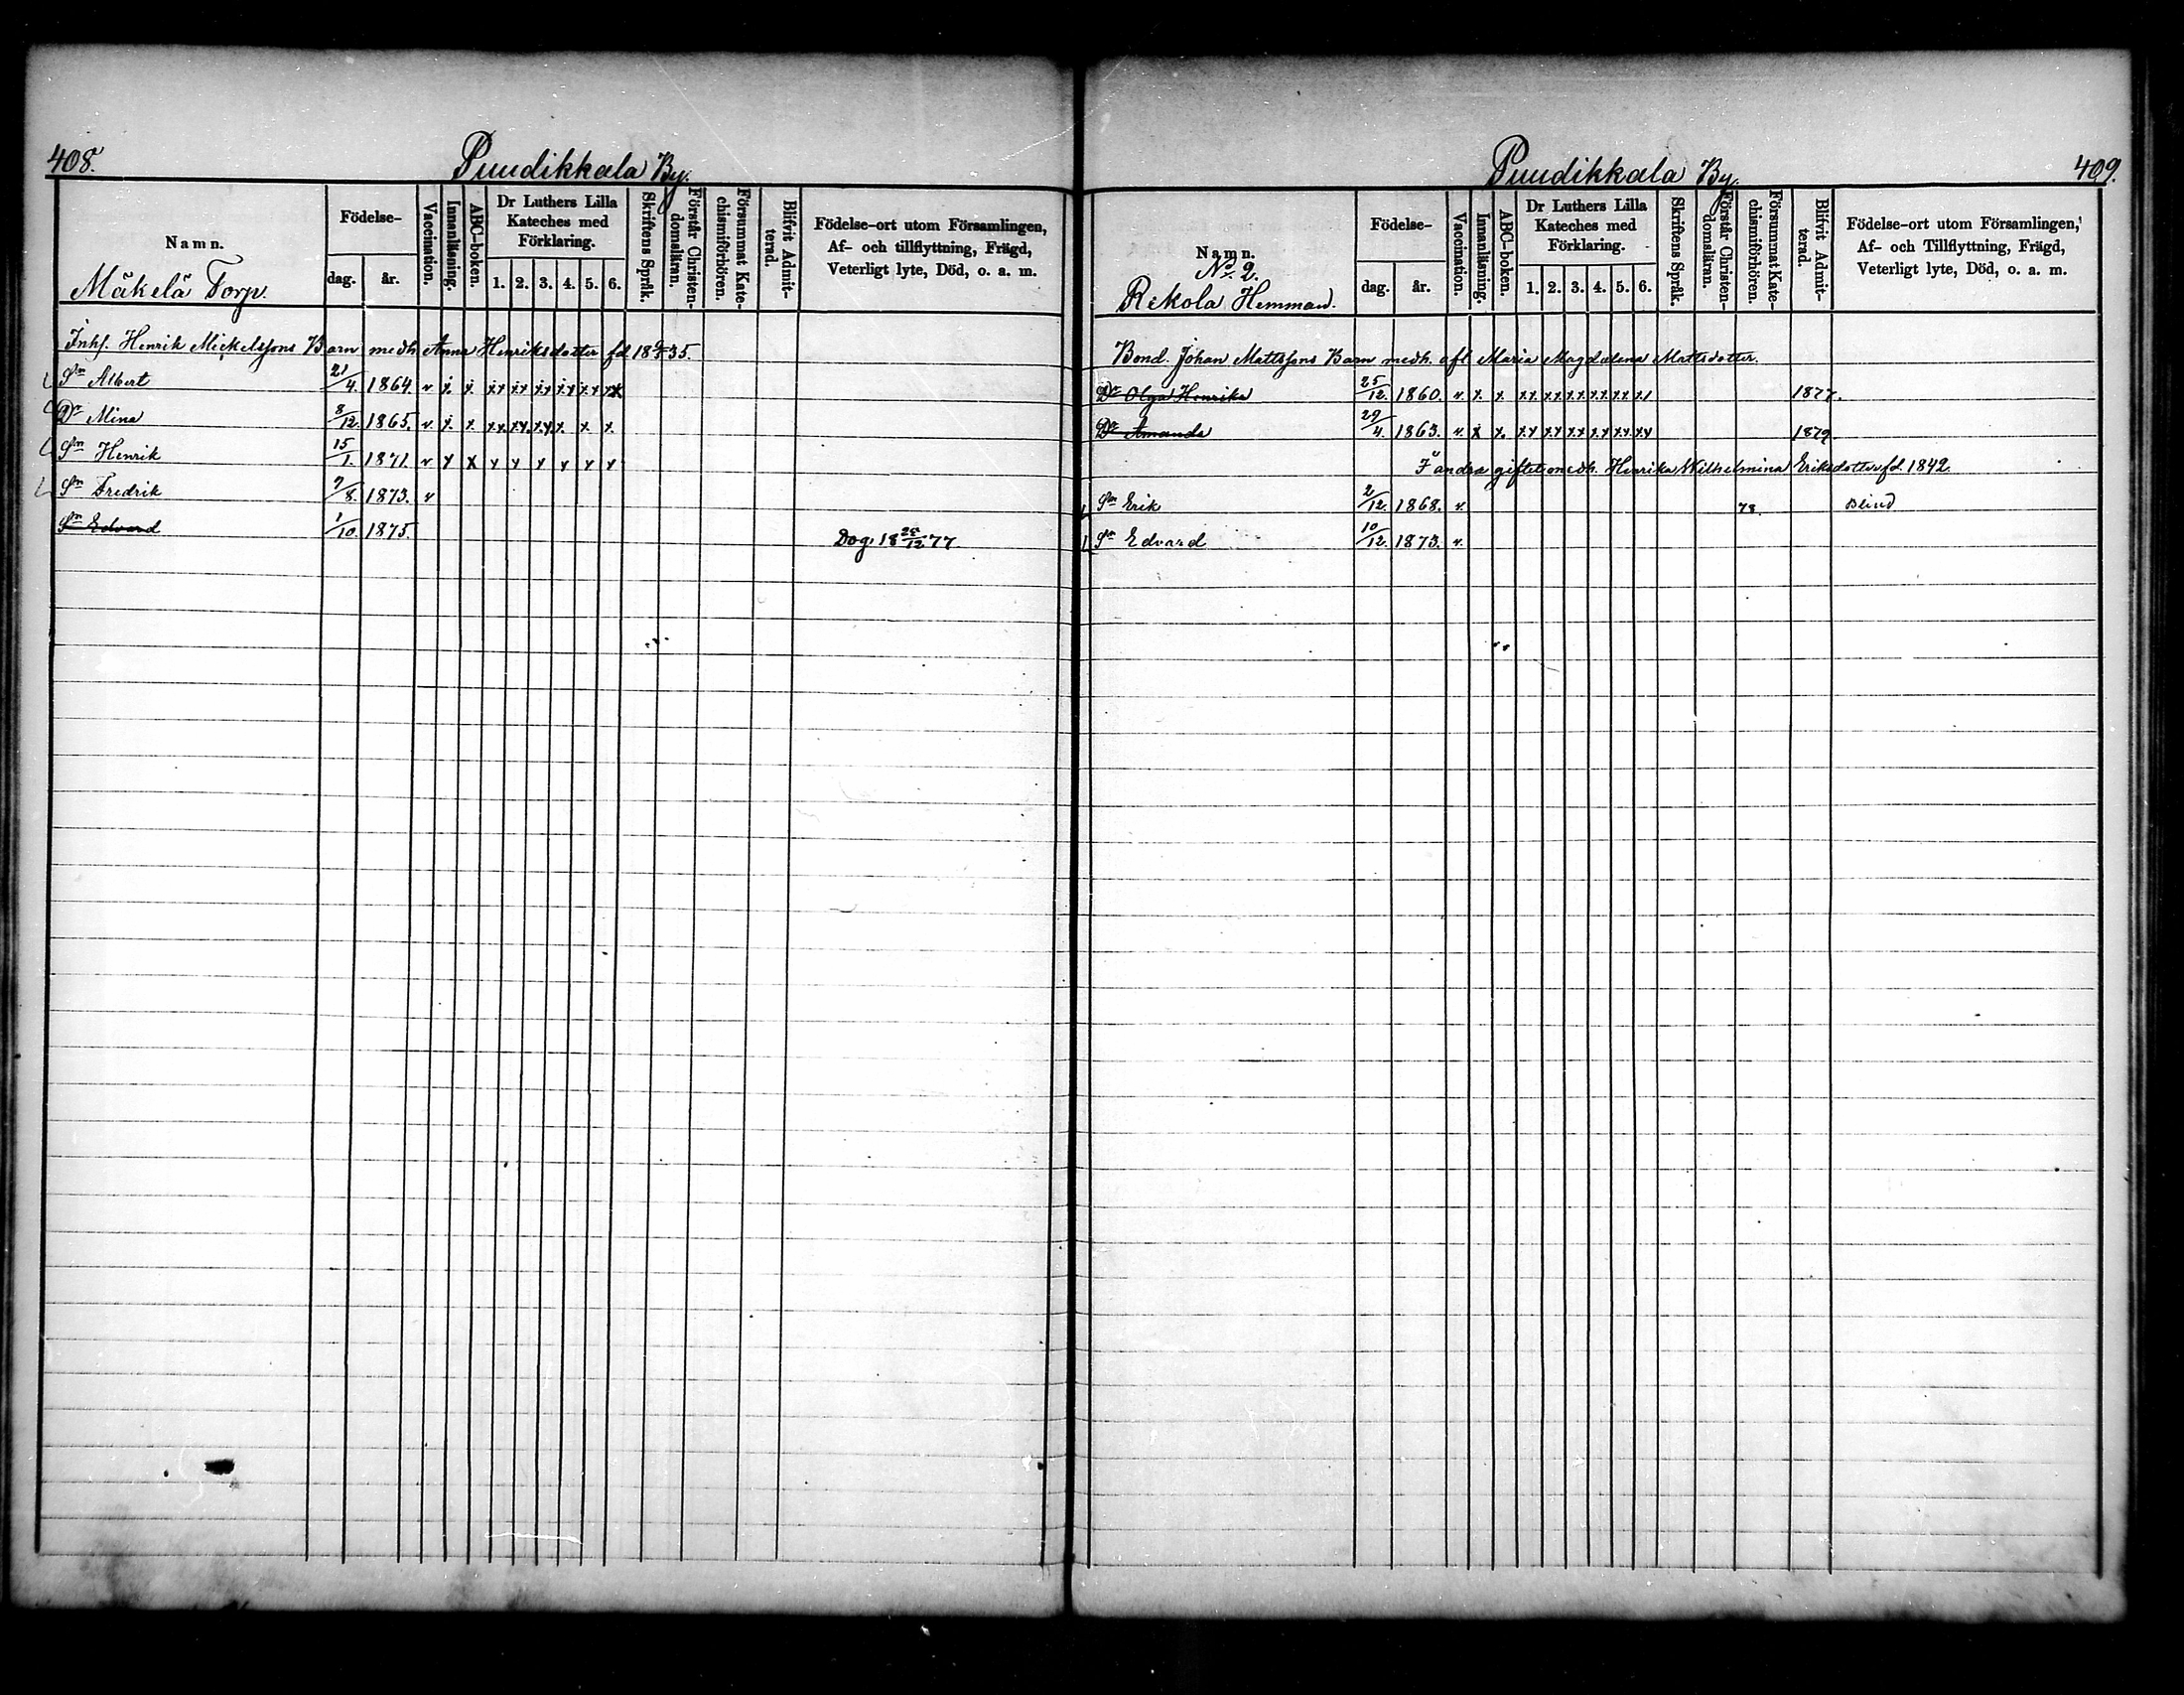 408.
Puudikkala By.
Namn.
Mäkelä Torp.
Födelse-
dag.
år.
Vaccination.
Innanläsning.
ABC-boken.
Dr Luthers Lilla
Kateches med
Förklaring.
1. 2. 3. 4. 5. 6.
Skriftens Språk.
Förstår Christen-
domsläran.
Försummat Kate-
chismiförhören.
Blifvit Admit-
terad.
Födelse-ort utom Församlingen,
Af- och tillflyttning, Frägd,
Veterligt lyte, Död, o. a. m.
Inhs. Henrik Mickelssons Barn medh. Anna Henriksdotter fd 35.
Sn Albert 21/4. 1864. v x x xx xx xx xx xx xx
Dr Mina 8/12. 1865. v x x xx. xx. xx. x. x x.
Sn Henrik 15/1. 1871. v x x x x x x x x
Sn Fredrik 7/8. 1873. v
Sn Edvard 1/10. 1875. Dog. 18 25/12 77.
409.
Puudikkala By.
Namn.
No 2.
Rekola Hemman.
Födelse-
dag.
år.
Vaccination.
Innanläsning.
ABC-boken.
Dr Luthers Lilla
Kateches med
Förklaring.
1. 2. 3. 4. 5. 6.
Skriftens Språk.
Förstår Christen-
domsläran.
Försummat Kate-
chismiförhören.
Blifvit Admit-
terad.
Födelse-ort utom Församlingen,
Af- och Tillflyttning, Frägd,
Veterligt lyte, Död, o. a. m.
Bond. Johan Mattssons Barn medh. afl. Maria Magdalena Mattsdotter.
Dr Olga Henrika 25/12. 1860. v. x x xx xx xx xx xx xx 1877.
Dr Amanda 29/4. 1863. v. x x. xx xx xx xx xx xx 1879.
I andra giftet medh. Henrika Wilhelmina Eriksdotter fd. 1842.
Sn Erik 2/12. 1868. v. 78. Blind
Sn Edvard 10/12. 1873. v.